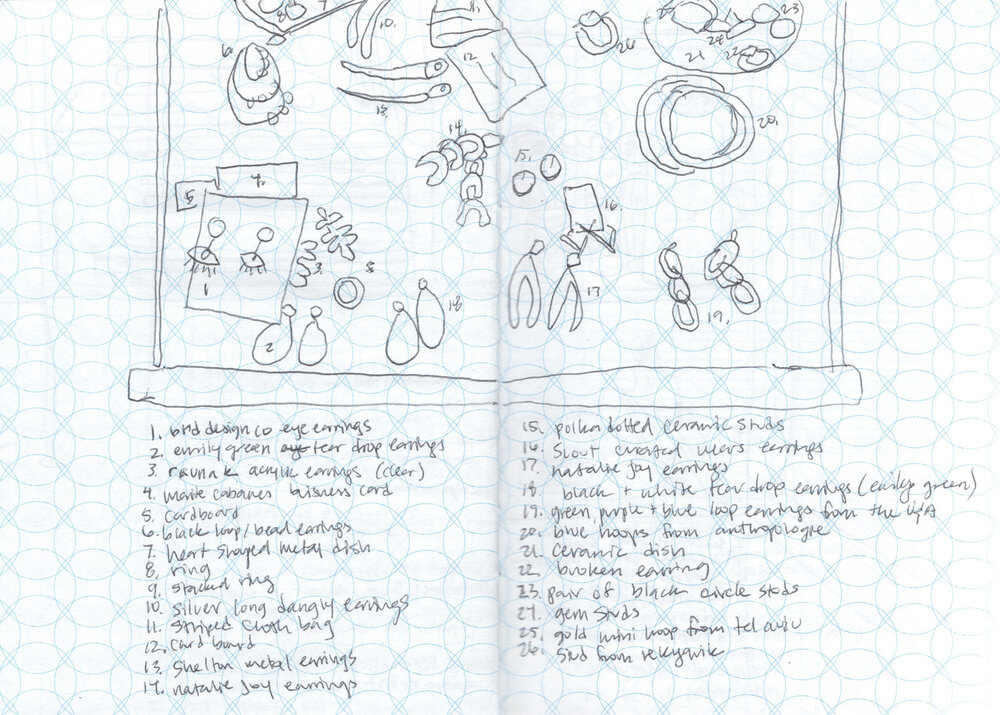 8.
7
10.
11.
25
24
23
21
22
26
6.
12.
13.
14.
20.
15.
5
4.
16.
3.
8.
1
2
18
17
19.
1. bhd design co eye earrings
2. emily green tear drop earrings
3. raunak acrylic earrings (clear)
4. maite cabanes buisness card
5. Cardboard
6. black loop/bead earrings
7. heart shaped metal dish
8. ring
9. stacked ring
10. silver long dangly earrings
11. striped cloth bag
12. Card board
13. Shelton metal earrings
14. natalie joy earrings
15. polka dotted ceramic studs
16. Scout curated wears earrings
17. natalie joy earrings
18. black + white tear drop earrings (emily green)
19. green purple + blue loop earrings from the V/A
20. blue hoops from anthropologie
21. Ceramic dish
22. broken earring
23. pair of black circle studs
24. gem studs
25. gold mini hoop from tel aviv
26. Stud from rekyavik